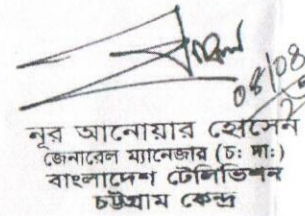 08/08
নূর আনোয়ার হোসেন
জেনারেল ম্যানেজার (চ: দা:)
বাংলাদেশ টেলিভিশন
চট্টগ্রাম কেন্দ্র